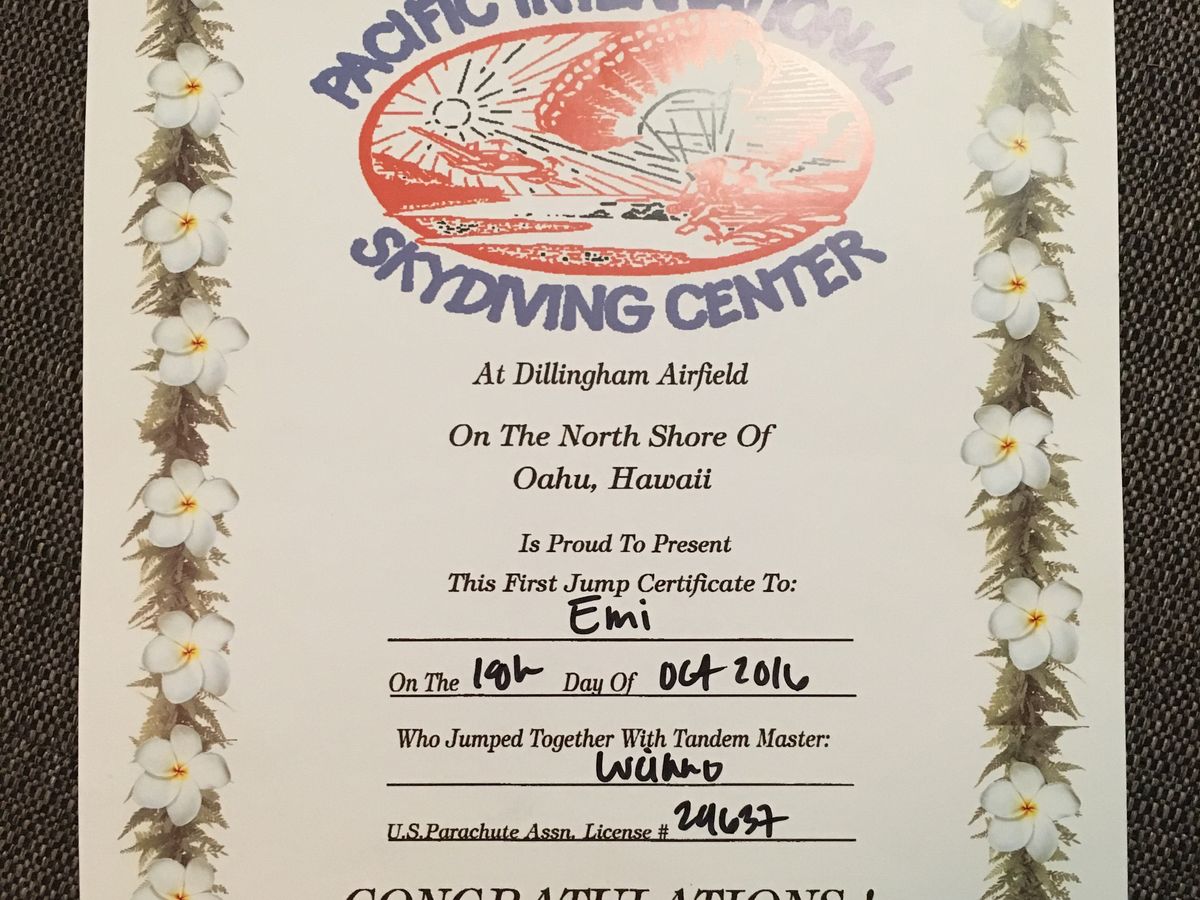 PACIFIC INTERNATIONAL
SKYDIVING CENTER
At Dillingham Airfield
On The North Shore Of
Oahu, Hawaii
Is Proud To Present
This First Jump Certificate To:
Emi
On The Day Of Oct 2016
Who Jumped Together With Tandem Master:
U.S.Parachute Assn. License # 29637
CONGRATULATIONS !